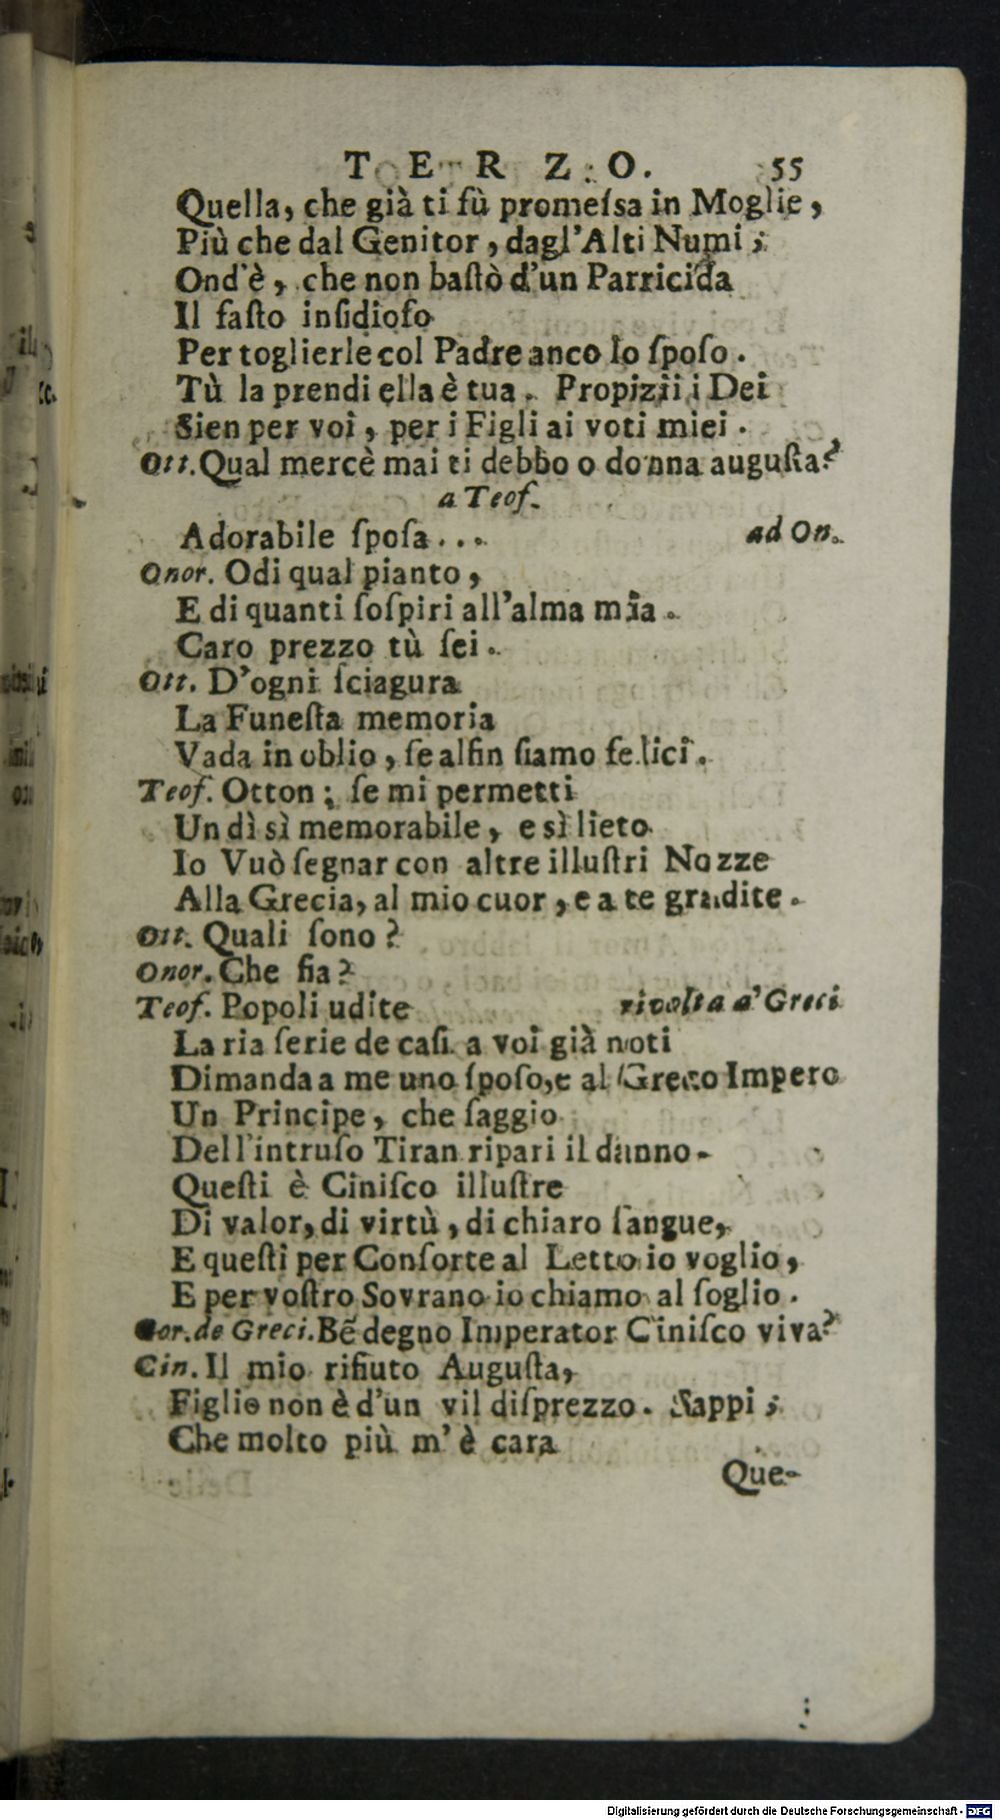 TERZO. 55
Quella, che già ti fù promeſsa in Moglie,
Più che dal Genitor, dagl'Alti Numi;
Ond'è, che non baſtò d'un Parricida
Il faſto inſidioſo
Per toglierle col Padre anco lo ſpoſo.
Tù la prendi ella è tua. Propizii i Dei
Sien per voi, per i Figli ai voti miei.
Ott. Qual mercè mai ti debbo o donna auguſta?
a Teof.
Adorabile ſpoſa... ad On.
Onor. Odi qual pianto,
E di quanti ſoſpiri all'alma mia.
Caro prezzo tù ſei.
Ott. D'ogni ſciagura
La Funeſta memoria
Vada in oblio, ſe alfin ſiamo felici.
Teof. Otton; ſe mi permetti
Un dì sì memorabile, e sì lieto
Io Vuò ſegnar con altre illuſtri Nozze
Alla Grecia, al mio cuor, e a te gradite.
Ott. Quali ſono?
Onor. Che fia?
Teof. Popoli udite rivolta a' Greci
La ria ſerie de caſi a voi già noti
Dimanda a me uno ſpoſo, e al Greco Impero
Un Principe, che ſaggio
Dell'intruſo Tiran ripari il danno.
Queſti è Ciniſco illuſtre
Di valor, di virtù, di chiaro ſangue,
E queſti per Conſorte al Letto io voglio,
E per voſtro Sovrano io chiamo al ſoglio.
Cor. de Greci. Bẽ degno Imperator Ciniſco viva?
Cin. Il mio rifiuto Auguſta,
Figlio non è d'un vil diſprezzo. Sappi;
Che molto più m'è cara
Que-
Digitalisierung gefördert durch die Deutsche Forschungsgemeinschaft - DFG